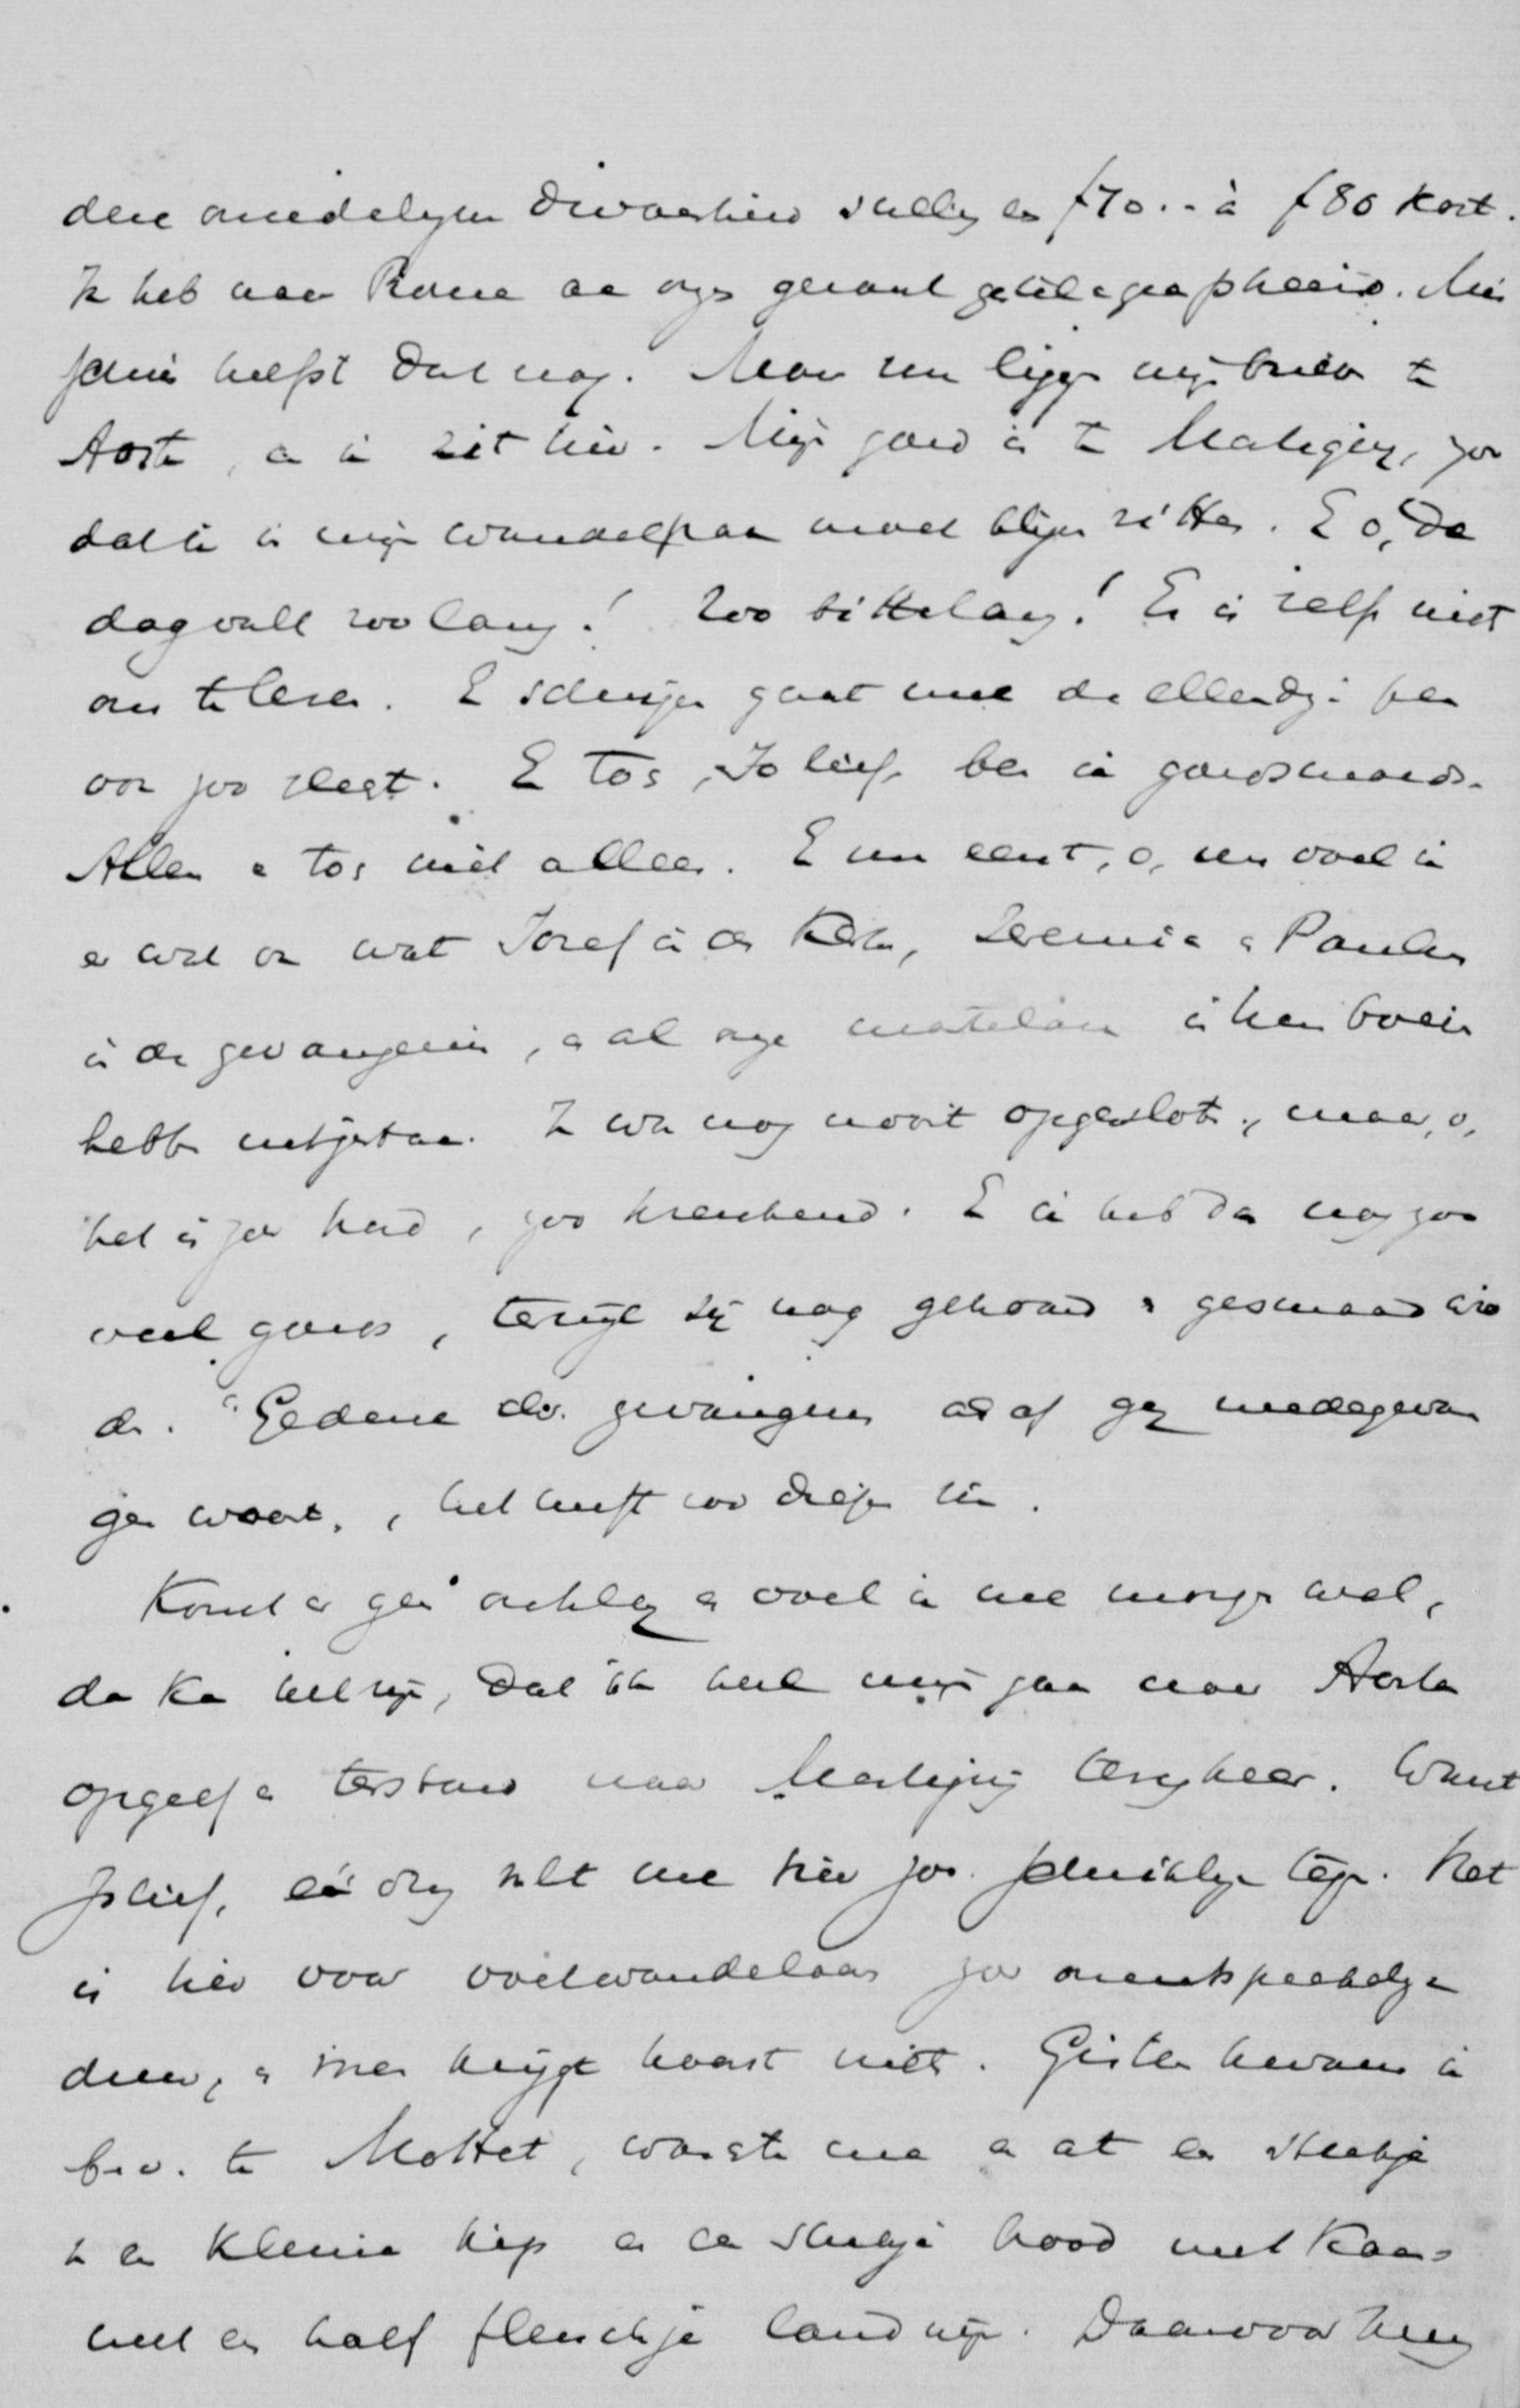 deze onedelijke dwaasheid stellig en f70.- à f80 kost.
Ik heb naar Rome aan onze gezant getelegrapheerd. Mis
schien helpt dat nog. Maar nu liggen mijn brieven te
Aosta, en ik zit hier. Mijn goed is te Martigny, zoo
dat ik in mijn wandelpak moet blijven zitten. En o, de
dag valt zoo lang! Zoo bitter lang! Er is zelfs niet
om te lezen. En schrijven gaat met de ellendige pen
ook zoo slegt. En tog, Jo lief, ben ik goedsmoeds.
Alleen en tog niet alleen. En nu eerst, o, nu voel ik
er wel ok wat Jozef in den Kerker, Jeremia en Paulus
in de gevangenis, en al onze martelaren in hun boeien
hebben uitgestaan. Ik was nog nooit opgesloten, maar, o,
het is zoo hard, zoo krenkend. En ik heb dan nog zoo
veel goeds, terwijl zij nog gehoond en gesmaad wier
den. "Gedenk der gevangenen als of gij medegevan
gen waart", het heeft zoo diepen zin.
Komt er geen antwoord en voel ik me morgen wel,
dan kan het zijn, dat ik heel mijn gaan naar Aosta
opgeef en terstond naar Martigny terugkeer. Want
Jo lief, één ding valt me hier zoo schrikkelijk tegen. Het
is hier voor voetwandelaars zoo onuitsprekelijk
duur, en men krijgt haast niets. Gisteren kwam ik
b.v. te Mottet, waschte me en at een stukje
v. een kleine kip en een stukje brood met kaas
met een half fleschje landwijn. Daarvoor